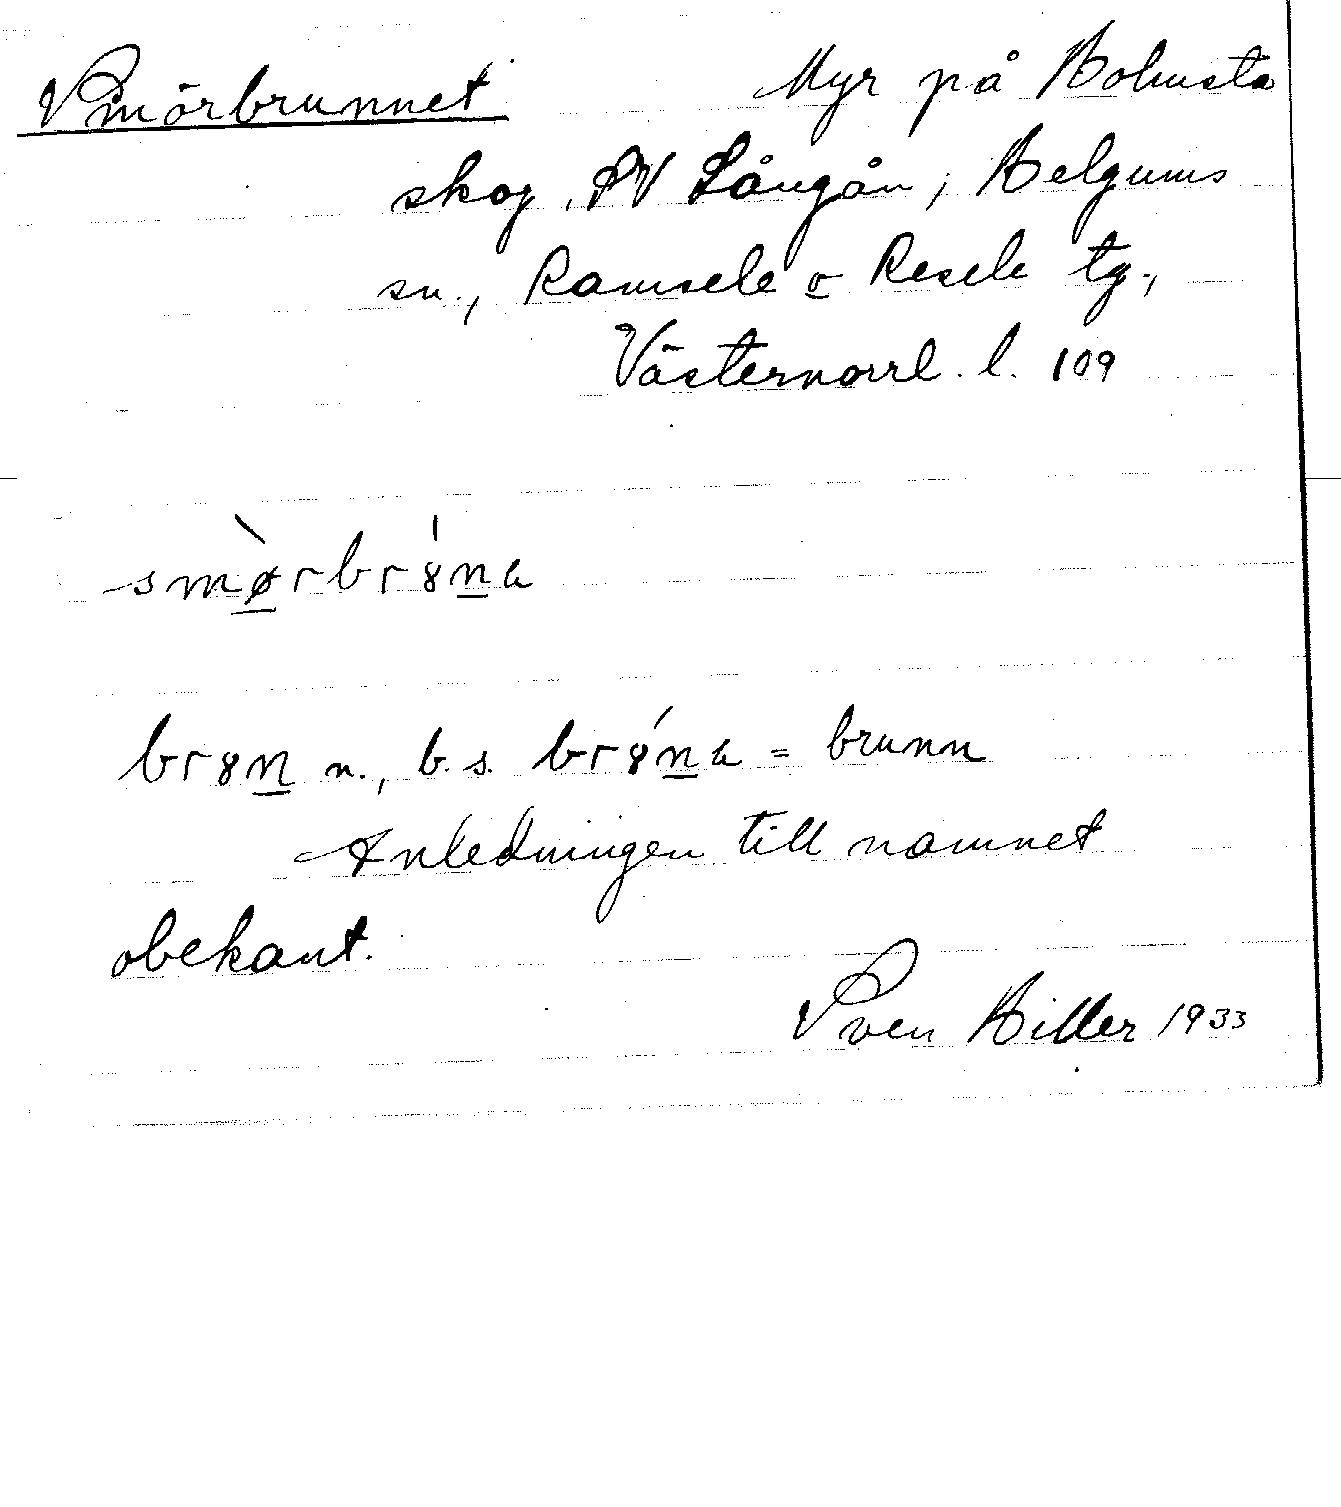 Smörbrunnet Myr på Holmsta
skog, SV Långån, Helgums
sn., Ramsele o Resele tg.,
Västernorrl. l. 109
smø̀rbrȣ́na
brȣn n., b. s. brȣ́na = brunn
Anledningen till namnet
obekant.
Sven Hiller 1933